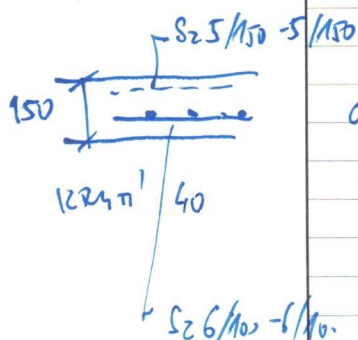 Sz 5/150-5/150
150
40
Sz 6/100-6/10.